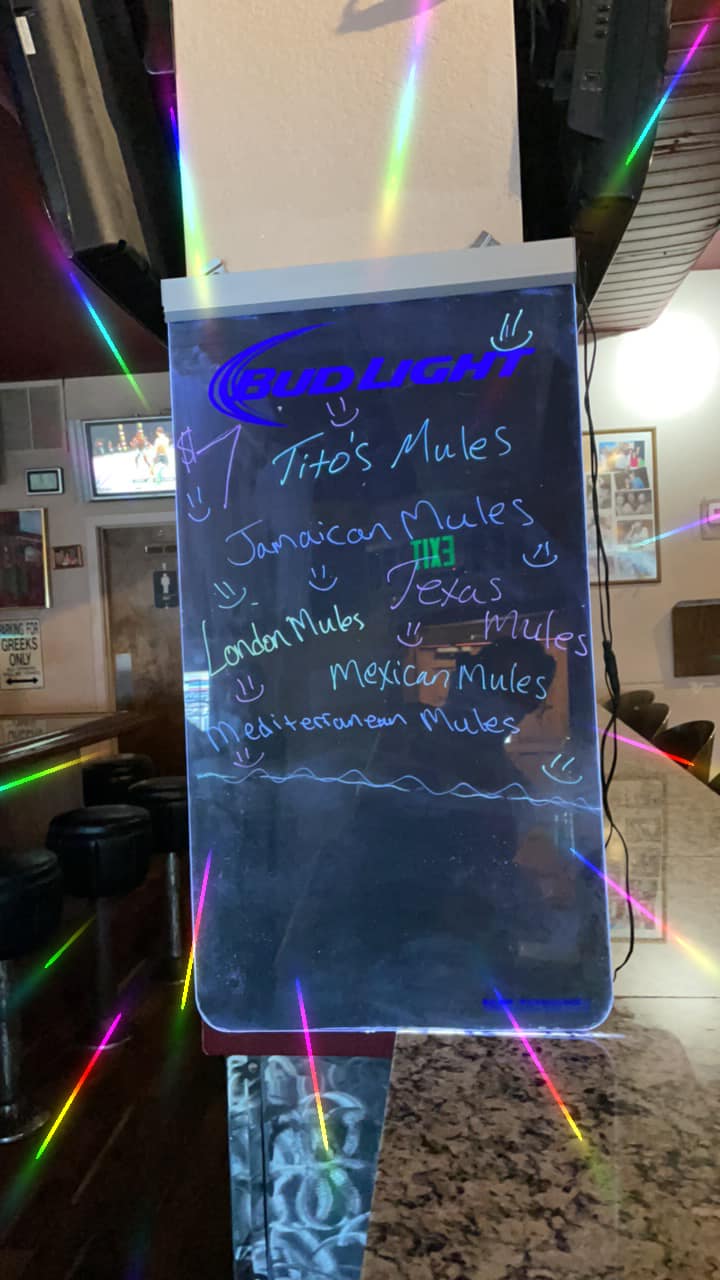 BUD LIGHT
$7 Tito's Mules
Jamaican Mules
EXIT
Texas
Mules
London Mules
Mexican Mules
Mediterranean Mules
PARKING FOR
GREEKS
ONLY